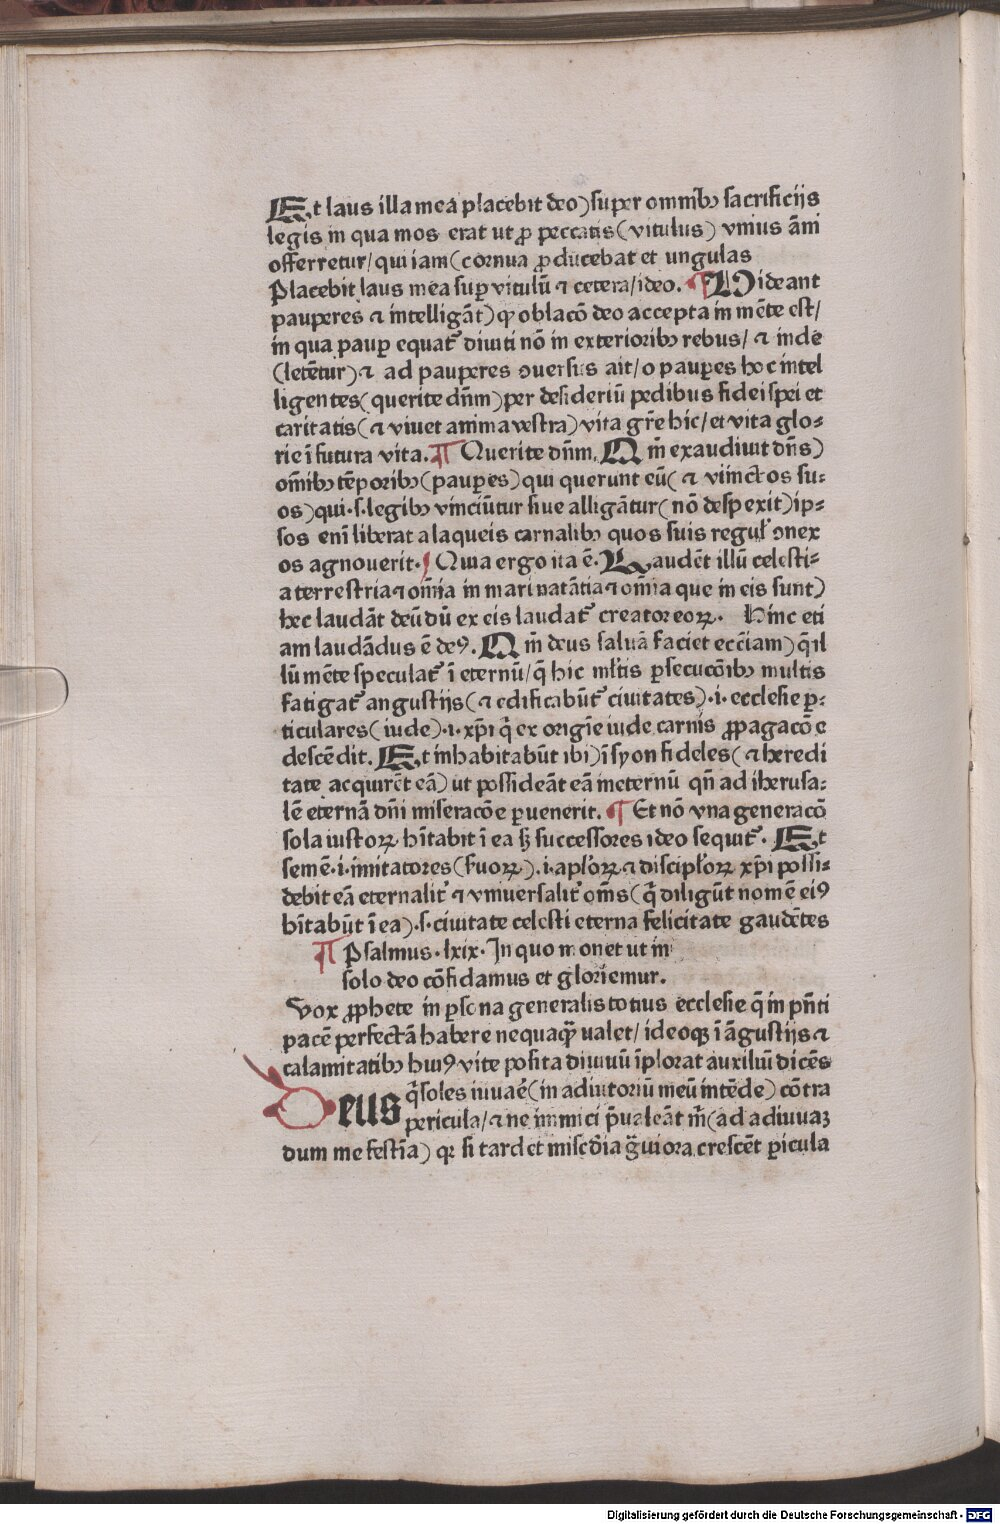 Et laus illa mea placebit deo) super omnibꝫ sacrificijs
legis in qua mos erat ut ꝓ peccatis (vitulus) vnius āni
offerretur / qui iam (cornua ꝓducebat et ungulas
Placebit laus mea suꝑ vitulū ⁊ cetera / ideo. ¶ Videant
pauperes ⁊ intelligāt) qꝫ oblacō deo accepta in mēte est /
in qua pauꝑ equat᷑ diuiti nō in exterioribꝫ rebus / ⁊ inde
(letētur) ⁊ ad pauperes ꝯuersus ait / o pauꝑes hec intel
ligentes (querite dn̄m) per desideriū pedibus fidei spei et
caritatis (⁊ viuet anima vestra) vita gr̄e hic / et vita glo⸗
rie ī futura vita. ¶ Querite dn̄m. Qm̄ exaudiuit dn̄s)
om̄ibꝫ tēporibꝫ (pauꝑes) qui querunt eū (⁊ vinctos su⸗
os) qui .s. legibꝫ vinciūtur siue alligātur (nō despexit) ip⸗
sos eni liberat a laqueis carnalibꝫ quos suis regul᷑ ꝯnex
os agnouerit. ¶ Quia ergo ita ē. Laudēt illū celesti⸗
a terrestria ⁊ om̄ia in mari natātia ⁊ om̄ia que in eis sunt)
hec laudāt deū dū ex eis laudat᷑ creator eoꝝ. Hinc eti
am laudādus ē deꝰ. Qm̄ deus saluā faciet ecc̄iam) q̄ il
lū mēte speculat᷑ ī eternū / q̄ hic ml̄tis ꝑsecucōibꝫ multis
fatigat᷑ angustijs (⁊ edificabūt᷑ ciuitates) .i. ecclesie ꝑ⸗
ticulares (iude) .i. xp̄i q̄ ex origīe iude carnis ꝓpagacōe
descēdit. Et inhabitabūt ibi) ī syon fideles (⁊ heredi
tate acquirēt eā) ut possideāt eā ineternū qn̄ ad iherusa⸗
lē eternā dn̄i miseracōe ꝑuenerit. ¶ Et nō vna generacō
sola iustoꝝ hītabit ī ea sꝫ successores ideo sequit᷑. Et
semē .i. imitatores (suoꝝ) .i. apl̄oꝝ ⁊ discipl̄oꝝ xp̄i possi⸗
debit eā eternalit᷑ ⁊ vniuersalit᷑ om̄s (q̄ diligūt nomē eiꝰ
hītabūt ī ea) .s. ciuitate celesti eterna felicitate gaudētes
¶ Psalmus .lxix. In quo monet ut in
solo deo cōfidamus et gloriemur.
Vox ꝓphete in ꝑsona generalis totius ecclesie q̄ in pn̄ti
pacē perfectā habere nequaq̄ꝫ ualet / ideoqꝫ ī āgustijs ⁊
calamitatibꝫ huiꝰ vite posita diuinū īplorat auxiliū dicēs
Deus q̄ soles iuuare (in adiutoriū meū intēde) cōtra
pericula / ⁊ ne inimici p̄ualeāt m̄ (ad adiuuaꝫ
dum me festīa) qꝛ si tardet mīscd̄ia ḡuiora crescēt ꝑicula
Digitalisierung gefördert durch die Deutsche Forschungsgemeinschaft - DFG